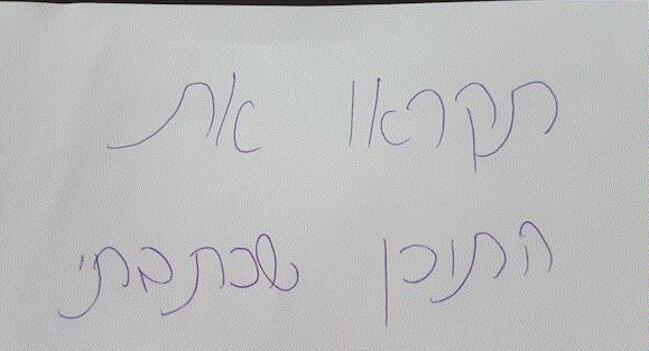 תקראו את
התוכן שכתבתי